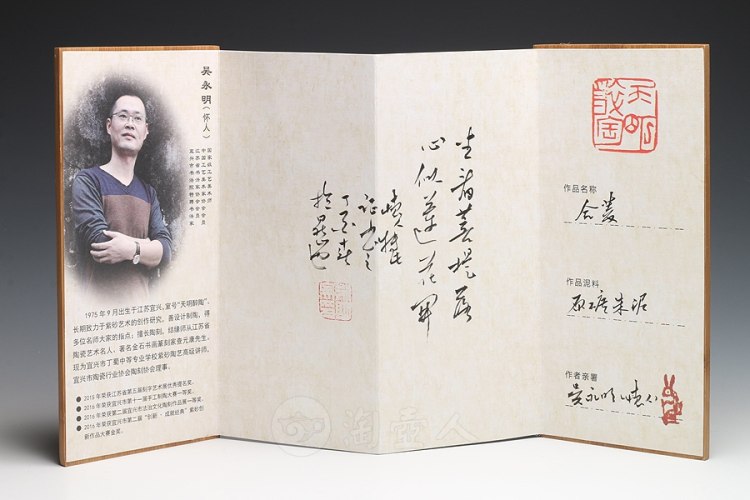 吴永明（怀人）
国家级工艺美术师
中国工艺美术家协会会员
江苏省书法家协会会员
宜兴市书法院特聘书法家
1975年9月出生于江苏宜兴，室号“天明醉陶”。
长期致力于紫砂艺术的创作研究。善设计制陶，得
多位名师大家的指点；擅长陶刻，结缘师从江苏省
陶瓷艺术名人、著名金石书画篆刻家查元康先生。
现为宜兴市丁蜀中等专业学校紫砂陶艺高级讲师，
宜兴市陶瓷行业协会陶刻协会理事。
● 2015年荣获江苏省第五届刻字艺术展优秀提名奖。
● 2016年荣获宜兴市第十一届手工制陶大赛一等奖。
● 2016年荣获第二届宜兴市法治文化陶刻作品展一等奖。
● 2016年荣获宜兴市第二届“创新·成就经典”紫砂创
新作品大赛金奖。
心似莲花开
作品名称
合菱
作品泥料
原矿朱泥
作者亲署
吴永明
淘壶人